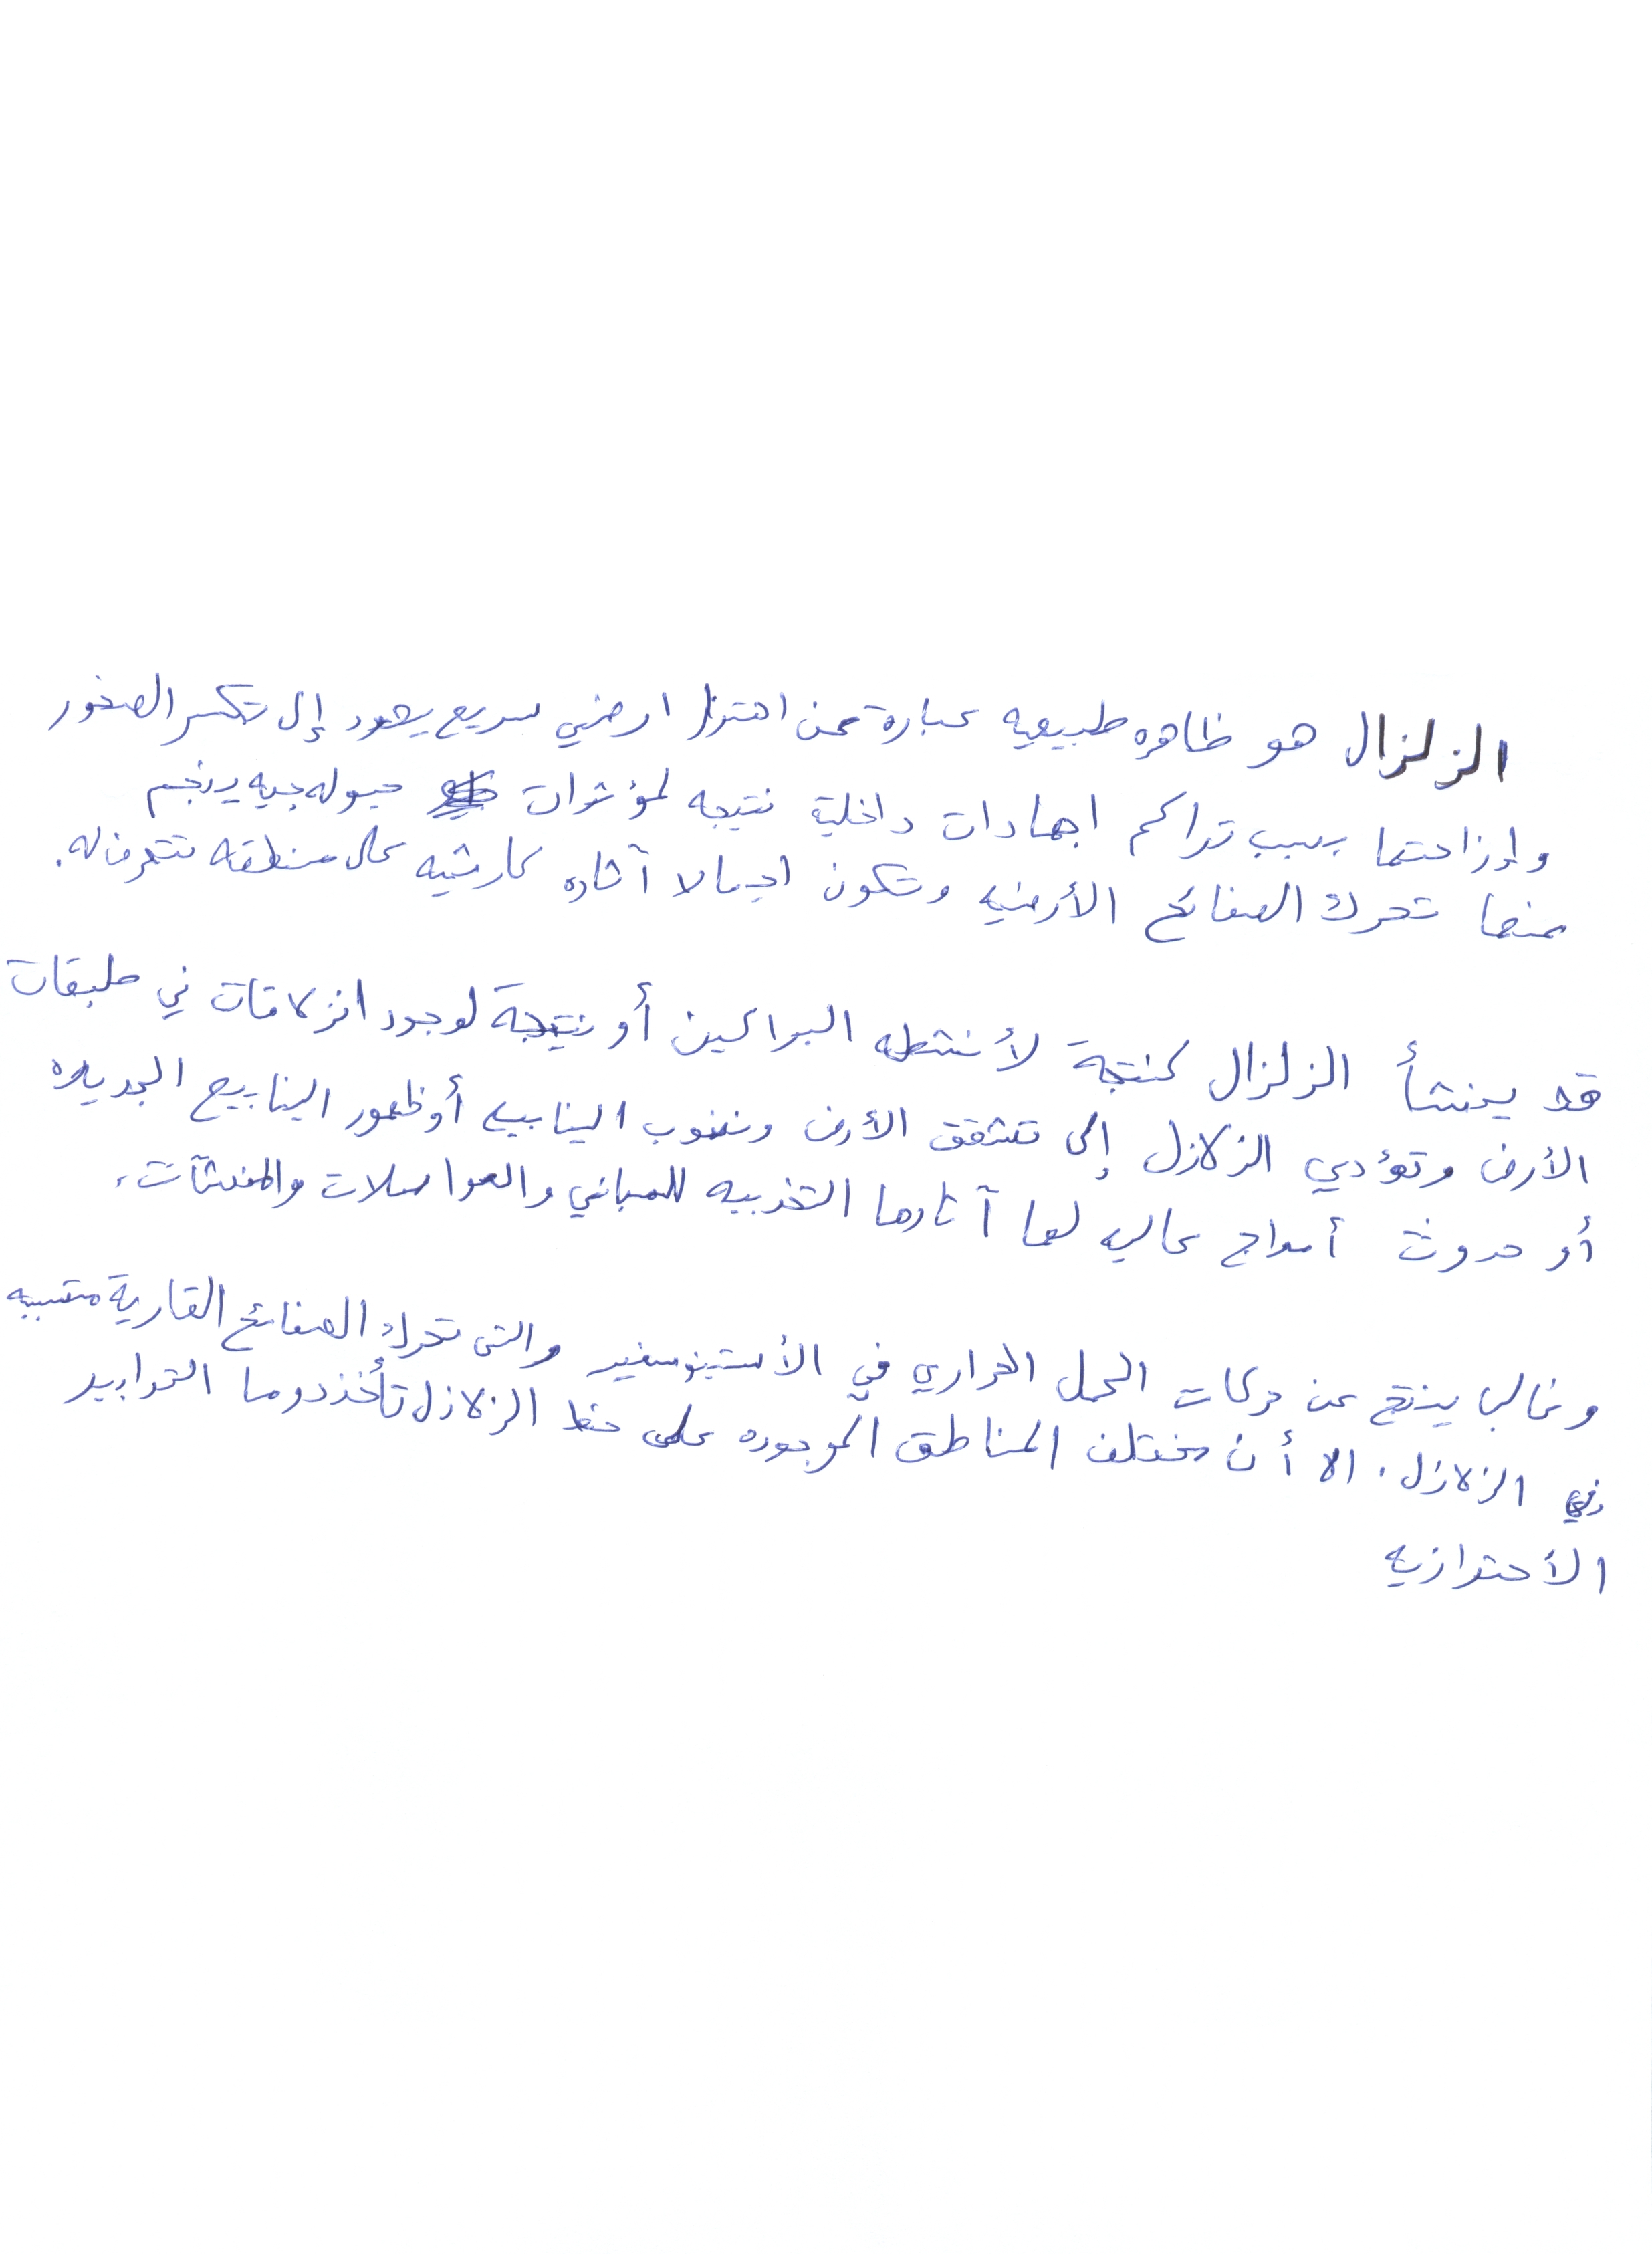 الزلزال هو ظاهره طبيعيه عبارة عن اهتزاز ارضي سريع يعود إلى تكسر الصخور
وإزاحتها بسبب تراكم اجهادات داخلية نتيجه لمؤثرات جيولوجيه ينجم
عنها تحرك الصفائح الأرضيه وتكون اجمالا آثاره كارثيه على منطقه تتعرض له.
قد ينشأ الزلزال كنتجة لأنشطه البراكين أو نتيجة لوجود انزلاقات في طبقات
الأرض وتؤدي الزلازل إلى تشقق الأرض ونضوب الينابيع أو ظهور الينابيع الجديده
أو حدوث أمواج عاليه لها آثارها التخربيه للمباني والمواصلات والمنشآت.
وغالب ينتج عن حركات الحمل الحراري في الأستينوسفير والتى تحرك الصفائح القارية متسببه
في الزلازل. الا أن مختلف المناطق الموجوده على خط الزلازل تأخذ دوما التدابير
الأحترازيه